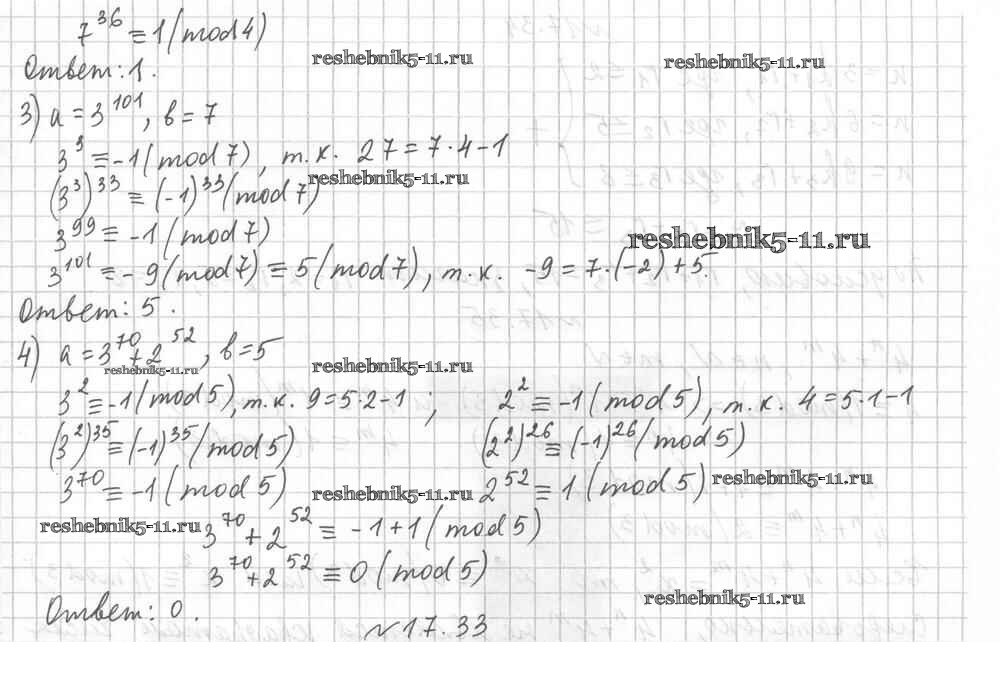 7^36 ≡ 1 (mod 4)
reshebnik5-11.ru
reshebnik5-11.ru
Ответ: 1.
3) a = 3^101, b = 7
3^3 ≡ -1 (mod 7), т.к. 27 = 7·4-1
reshebnik5-11.ru
(3^3)^33 ≡ (-1)^33 (mod 7)
3^99 ≡ -1 (mod 7)
reshebnik5-11.ru
3^101 ≡ -9 (mod 7) ≡ 5 (mod 7), т.к. -9 = 7·(-2)+5.
Ответ: 5.
4) a = 3^70 + 2^52, b = 5
reshebnik5-11.ru
reshebnik5-11.ru
3^2 ≡ -1 (mod 5), т.к. 9 = 5·2-1 ; 2^2 ≡ -1 (mod 5), т.к. 4 = 5·1-1
(3^2)^35 ≡ (-1)^35 (mod 5) (2^2)^26 ≡ (-1)^26 (mod 5)
3^70 ≡ -1 (mod 5) 2^52 ≡ 1 (mod 5)
reshebnik5-11.ru
reshebnik5-11.ru
reshebnik5-11.ru
3^70 + 2^52 ≡ -1+1 (mod 5)
3^70 + 2^52 ≡ 0 (mod 5)
reshebnik5-11.ru
Ответ: 0.
№17.33